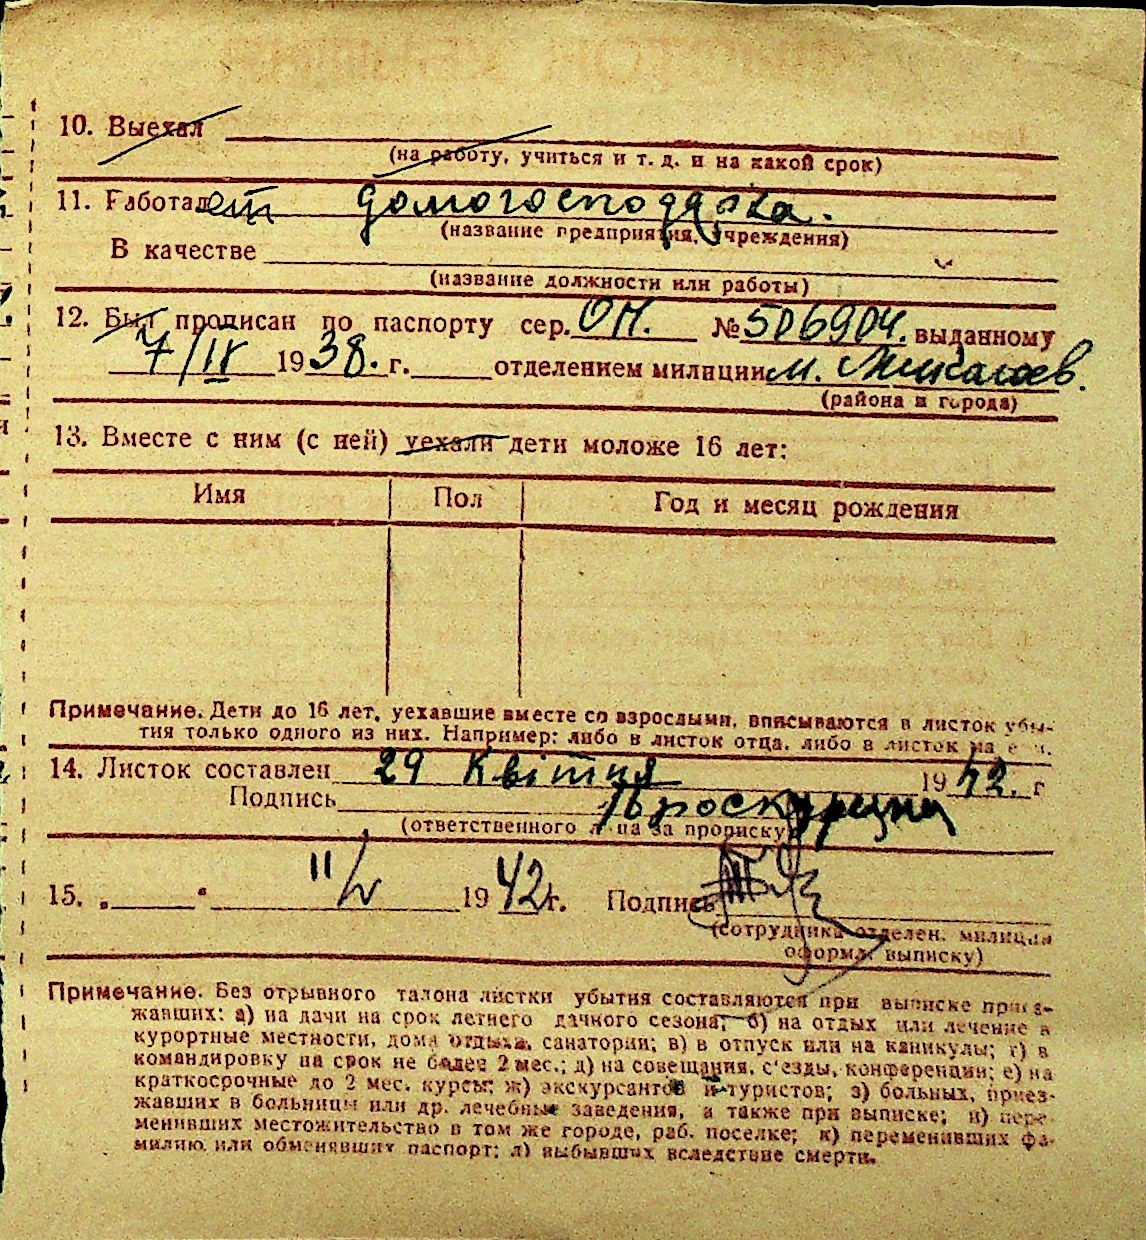 10. Выехал
(на работу, учиться и т. д. и на какой срок)
11. Работает домогосподарка.
(название предприятия, учреждения)
В качестве
(название должности или работы)
12. Был прописан по паспорту сер. ОН. № 506904. выданному
7/IV 1938. г. отделением милиции м. Миколаєв.
(района и города)
13. Вместе с ним (с ней) уехали дети моложе 16 лет:
Имя Пол Год и месяц рождения
Примечание. Дети до 16 лет, уехавшие вместе со взрослыми, вписываются в листок убы-
тия только одного из них. Например: либо в листок отца, либо в листок матери.
14. Листок составлен 29 Квітня 1942. г
Подпись
(ответственного лица за прописку)
15. „ “ 11/V 1942 г. Подпись
(сотрудника отделен. милиции
оформл. выписку)
Примечание. Без отрывного талона листки убытия составляются при выписке приез-
жавших: а) на дачи на срок летнего дачного сезона; б) на отдых или лечение в
курортные местности, дома отдыха, санатории; в) в отпуск или на каникулы; г) в
командировку на срок не более 2 мес.; д) на совещания, с'езды, конференции; е) на
краткосрочные до 2 мес. курсы; ж) экскурсантов и туристов; з) больных, приез-
жавших в больницы или др. лечебные заведения, а также при выписке; и) пере-
менивших местожительство в том же городе, раб. поселке; к) переменивших фа-
милию или обменявших паспорт; л) выбывших вследствие смерти.